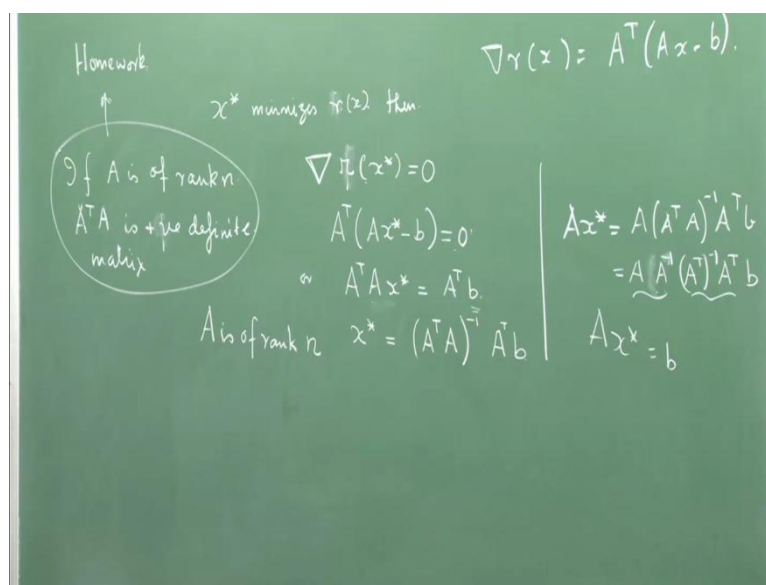 ∇r(x) = Aᵀ(Ax - b).
Homework
x* minimizes r(x) then
If A is of rank n
AᵀA is +ve definite
matrix
∇r(x*) = 0
Aᵀ(Ax* - b) = 0
or AᵀAx* = Aᵀb.
A is of rank n x* = (AᵀA)⁻¹ Aᵀb
Ax* = A(AᵀA)⁻¹Aᵀb
= A A⁻¹(Aᵀ)⁻¹Aᵀ b
Ax* = b